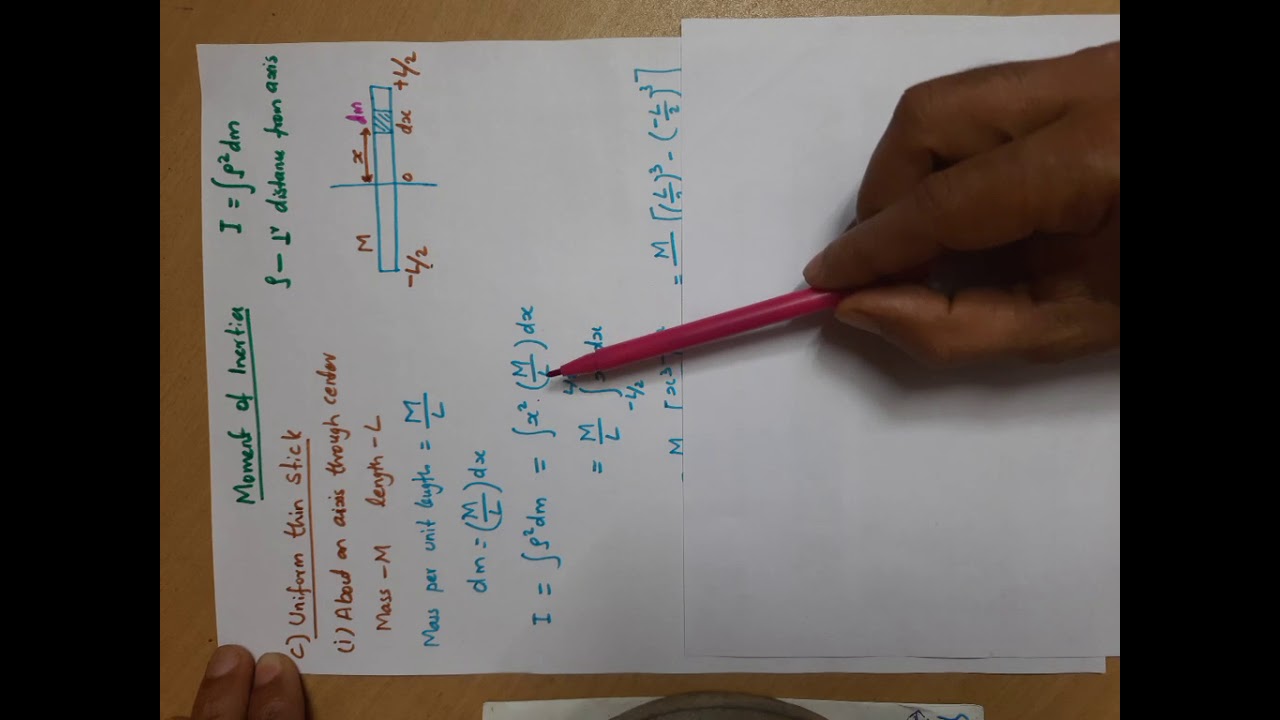 Moment of Inertia I = ∫ρ²dm
ρ – ⊥r distance from axis
c) Uniform thin stick
(i) About an axis through center
Mass – M length – L
M x dm
-L/2 0 dx +L/2
Mass per unit length = M/L
dm = (M/L) dx
I = ∫ρ²dm = ∫x² · (M/L) dx
= M/L ∫ dx
-L/2
M [x³
= M [(L/2)³ - (-L/2)³]